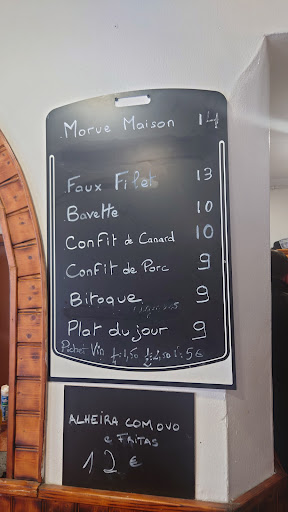 Morue Maison 14
Faux Filet 13
Bavette 10
Confit de Canard 10
Confit de Porc 9
Bitoque 9
Plat du jour 9
Pichet Vin 1,50 2,50 5€
ALHEIRA COM OVO
e FRITAS
12€